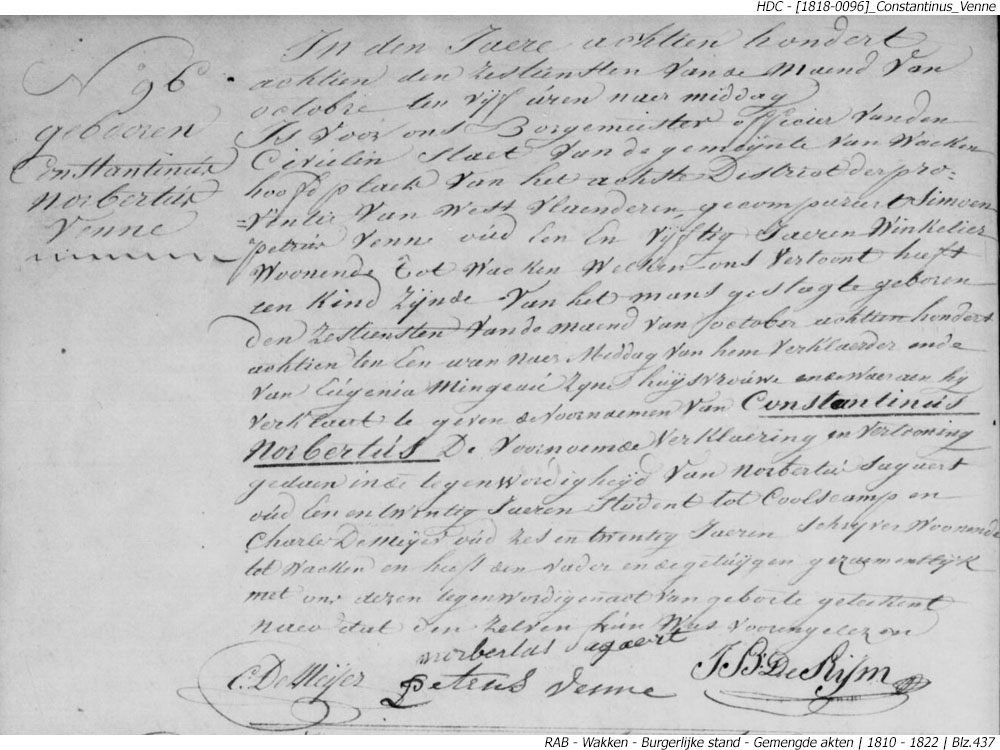 HDC - [1818-0096]_Constantinus_Venne
N° 96
gebooren
Constantinus
Norbertus
Venne
In den Jaere achtien hondert
achtien den zestiensten vande Maend van
octobre ten vijf uren naer middag
Is voor ons Borgemeister officier vanden
Civielen Staet van de gemeijnte van Wacken
hoofd plaets van het achste District der pro-
vintie van West Vlaenderen, gecompareert Simoen
petrus Venne oud Een En Vijftig Jaeren Winkelier
Woonende tot Wacken Wecken ons vertoont heeft
een Kind Zijnde van het mans geslagte geboren
den Zestiensten vande maend van october achtien hondert
achtien ten Een uren naer Middag van hem Verklaerder ende
van Eugenia Mingeau Zyne huijsvrouwe ende Waeraen hij
verklaert te geven de voornaemen van Constantinus
Norbertus De Voornoemde Verklaering en Vertooning
gedaen in de tegenwordigheyd van Norbertus Sagaert
oud Een en twentig Jaeren Student tot Coolscamp en
Charles De Meijer oud zes en twentig Jaeren Schrijver Woonende
tot Wacken en heeft den Vader en de getuijgen gezaementlijk
met ons dezen tegenwordigen act van geboorte geteekent
naer dat den zelven hun Was voorengelezen
norbertus Sagaert
C. De Meijer Petrus Venne J B De Rijm
RAB - Wakken - Burgerlijke stand - Gemengde akten | 1810 - 1822 | Blz.437